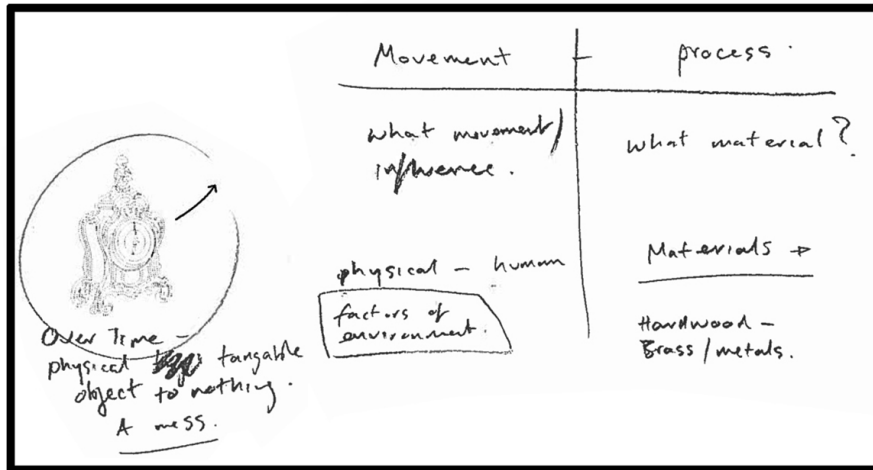 Movement - process.
what movement/
influence.
what material?
physical - human
factors of
environment.
Materials →
Hardwood -
Brass/metals.
Over Time -
physical tangable
object to nothing.
A mess.